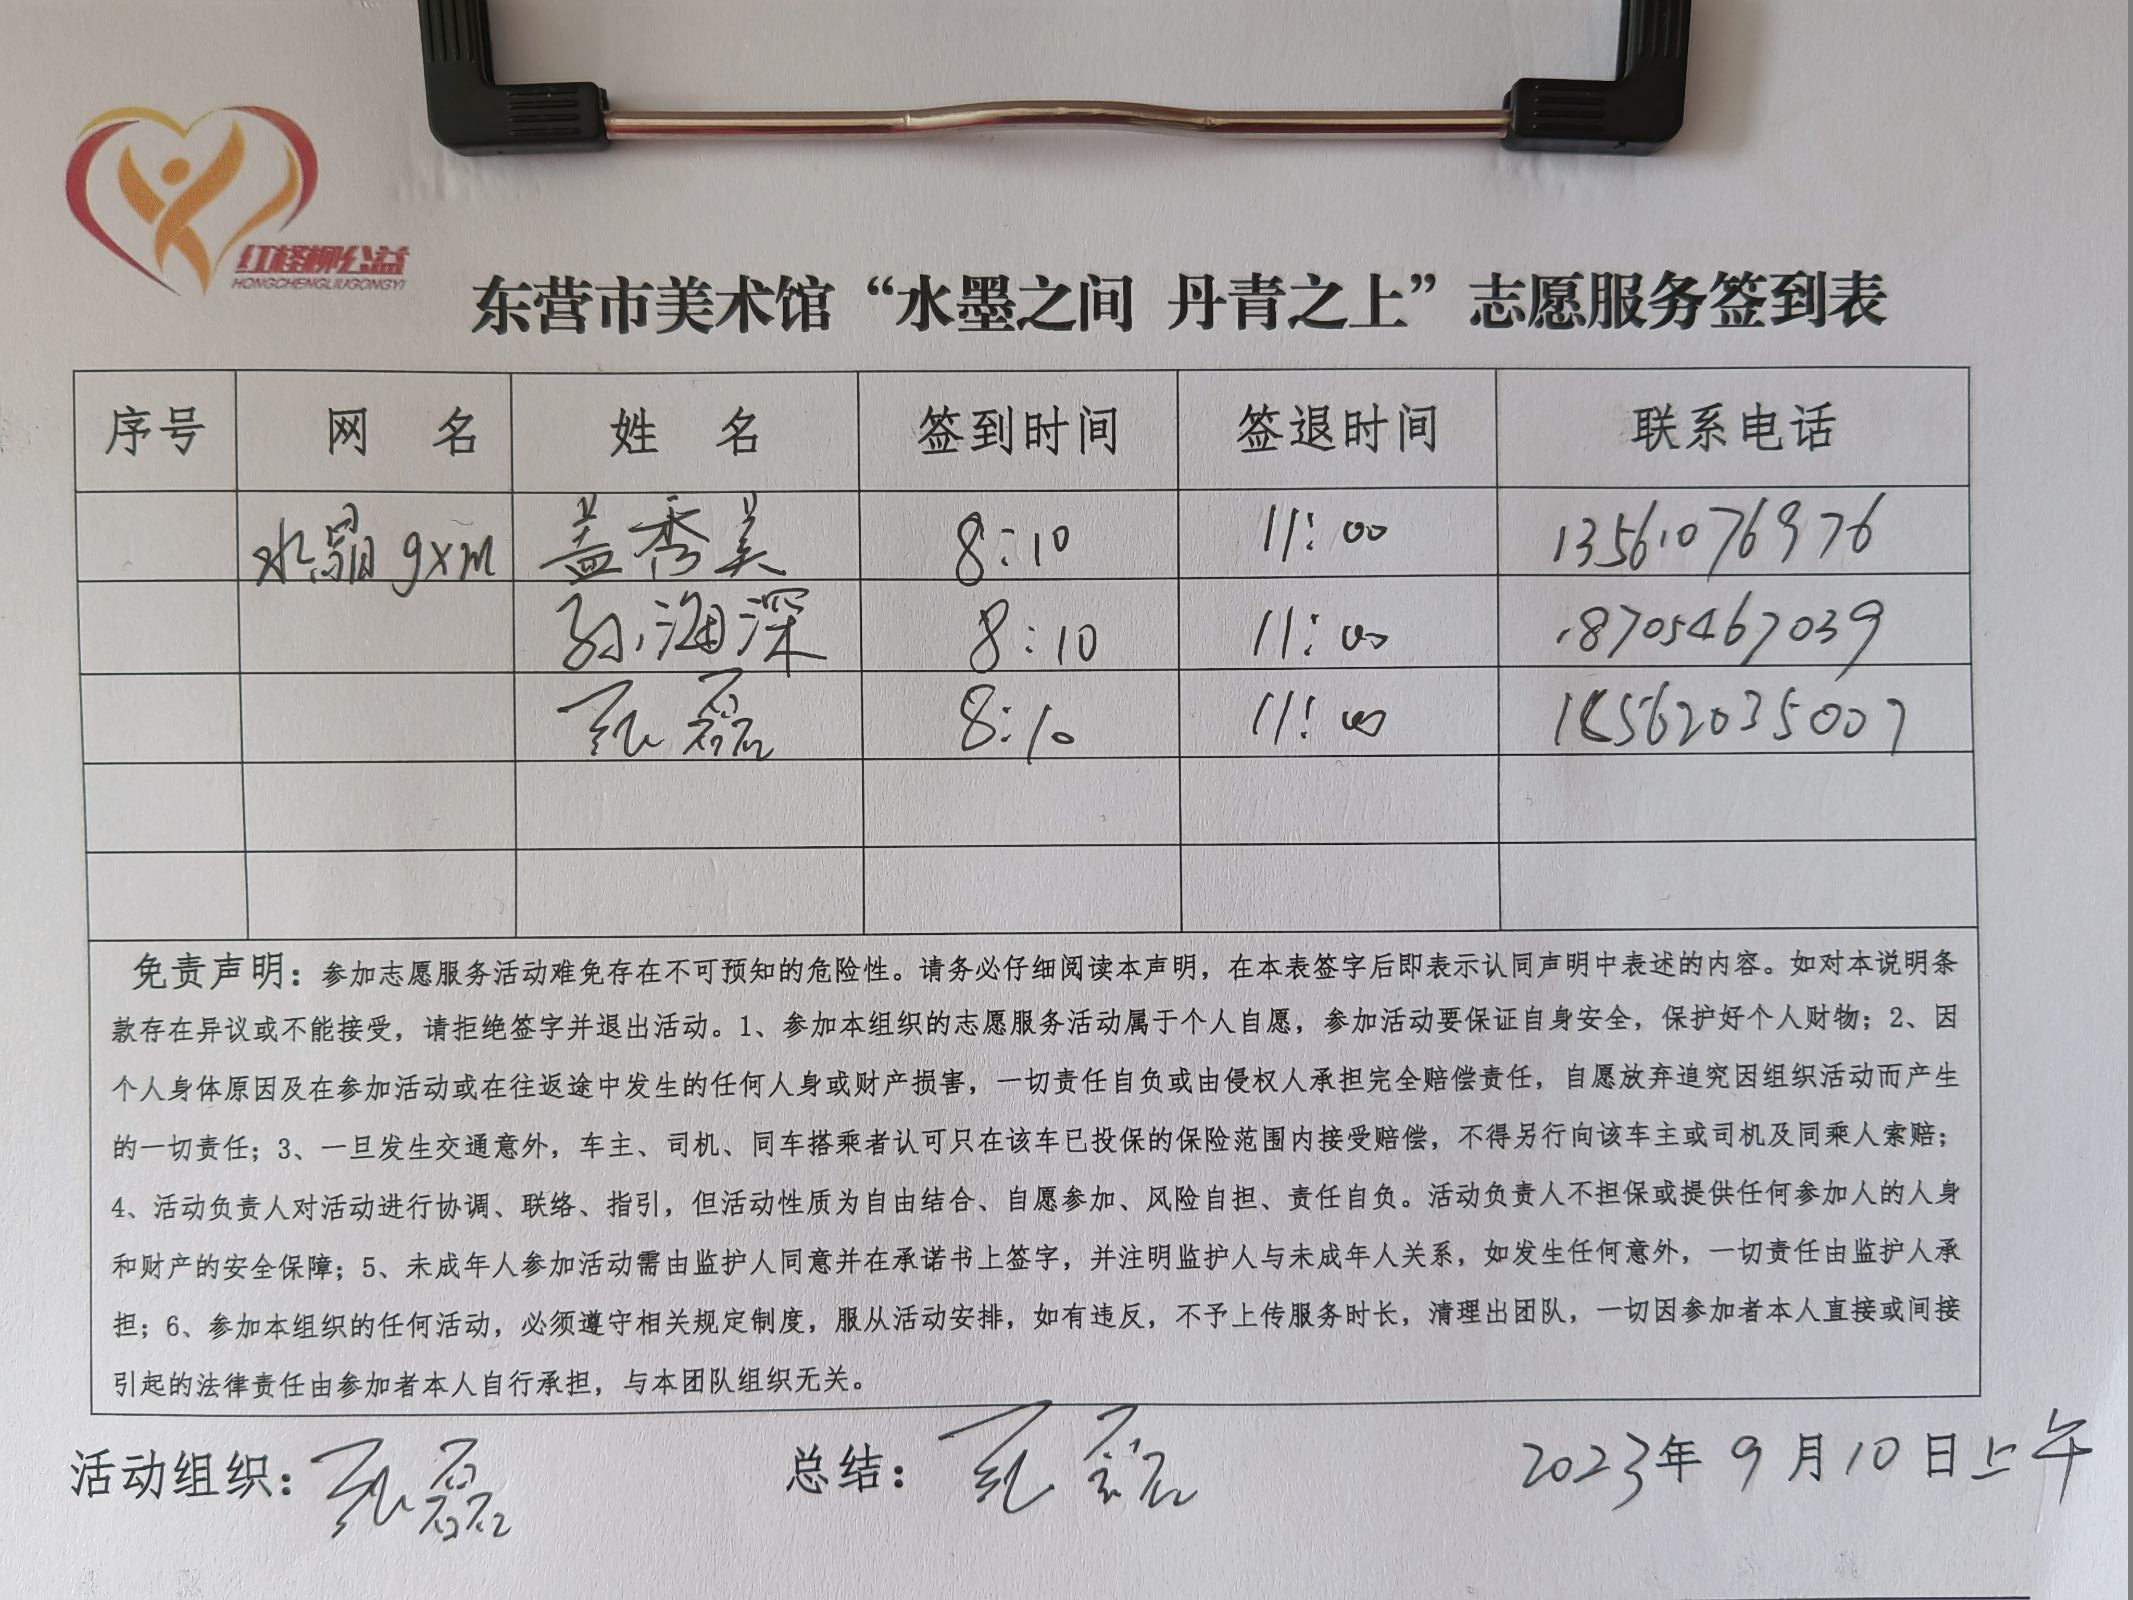 红柽柳公益
HONGCHENGLIUGONGYI
东营市美术馆“水墨之间 丹青之上”志愿服务签到表
序号 网 名 姓 名 签到时间 签退时间 联系电话
水晶gxm 盖秀美 8:10 11:00 13561076976
孙海深 8:10 11:00 18705467039
磊 8:10 11:00
免责声明：参加志愿服务活动难免存在不可预知的危险性。请务必仔细阅读本声明，在本表签字后即表示认同声明中表述的内容。如对本说明条
款存在异议或不能接受，请拒绝签字并退出活动。1、参加本组织的志愿服务活动属于个人自愿，参加活动要保证自身安全，保护好个人财物；2、因
个人身体原因及在参加活动或在往返途中发生的任何人身或财产损害，一切责任自负或由侵权人承担完全赔偿责任，自愿放弃追究因组织活动而产生
的一切责任；3、一旦发生交通意外，车主、司机、同车搭乘者认可只在该车已投保的保险范围内接受赔偿，不得另行向该车主或司机及同乘人索赔；
4、活动负责人对活动进行协调、联络、指引，但活动性质为自由结合、自愿参加、风险自担、责任自负。活动负责人不担保或提供任何参加人的人身
和财产的安全保障；5、未成年人参加活动需由监护人同意并在承诺书上签字，并注明监护人与未成年人关系，如发生任何意外，一切责任由监护人承
担；6、参加本组织的任何活动，必须遵守相关规定制度，服从活动安排，如有违反，不予上传服务时长，清理出团队，一切因参加者本人直接或间接
引起的法律责任由参加者本人自行承担，与本团队组织无关。
活动组织： 磊 总结： 磊 2023年 9月10日上午